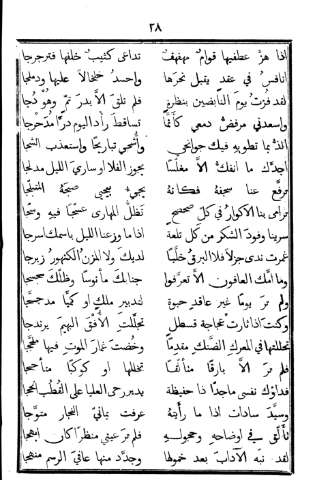 ٢٨
اذا هزّ عطفيها قوام مهفهف تداعى كثيب خلفها فترجرجا
انافس في عقد يقبل نحرها واحسد خلخالاً عليها ودملجا
لقد فزت يوم النابضين بنظرة فلم تلق الا بدر تمّ وهودجا
واسعدني مرفضّ دمعي كأنما تساقط رأد اليوم درّا مدحرجا
الذّ بما تطويه فيك جوانحي وأشجى تباريحا واستعذب الشجا
اجدّك ما انفك الا مغلسا يجوز الفلا او ساري الليل مدلجا
ترفع عنا سجفه فكانه
ترامى بنا الاكوار في كل صحصح تظلّ المهارى عسجا فيه وسجا
سرينا وفود الشكر من كل تلعة اذا ما وزعنا الليل باسمك اسرجا
غمرت ندى جزلا فلا البرق خلبا لديك ولا المزن الكنهور زبرجا
وما امّك العافون الا تعرفوا جنابك مأنوسا وظلك سجسجا
ولم تر يوما غير عاقد حبوة لتدبير ملك او كميا مدججا
وكنت اذا ثارت عجاجة قسطل تجللت الافق البهيم يرندجا
تخللتها في المعرك الضنك مقدما وخضت غمار الموت فيها ملججا
فلم تر الا بارقا متألقا تخلله او كوكبا متأججا
فداؤك نفسي ماجدا ذا حفيظة يدير رحى العليا على القطب الحجا
وسيّد سادات اذا ما رأيته عرفت يماني النجار متوجا
تألق في اوضاحه وحجوله فلم تر عيني منظرا كان ابهجا
لقد نبّه الآداب بعد خمولها وجدد منها عافي الرسم منهجا